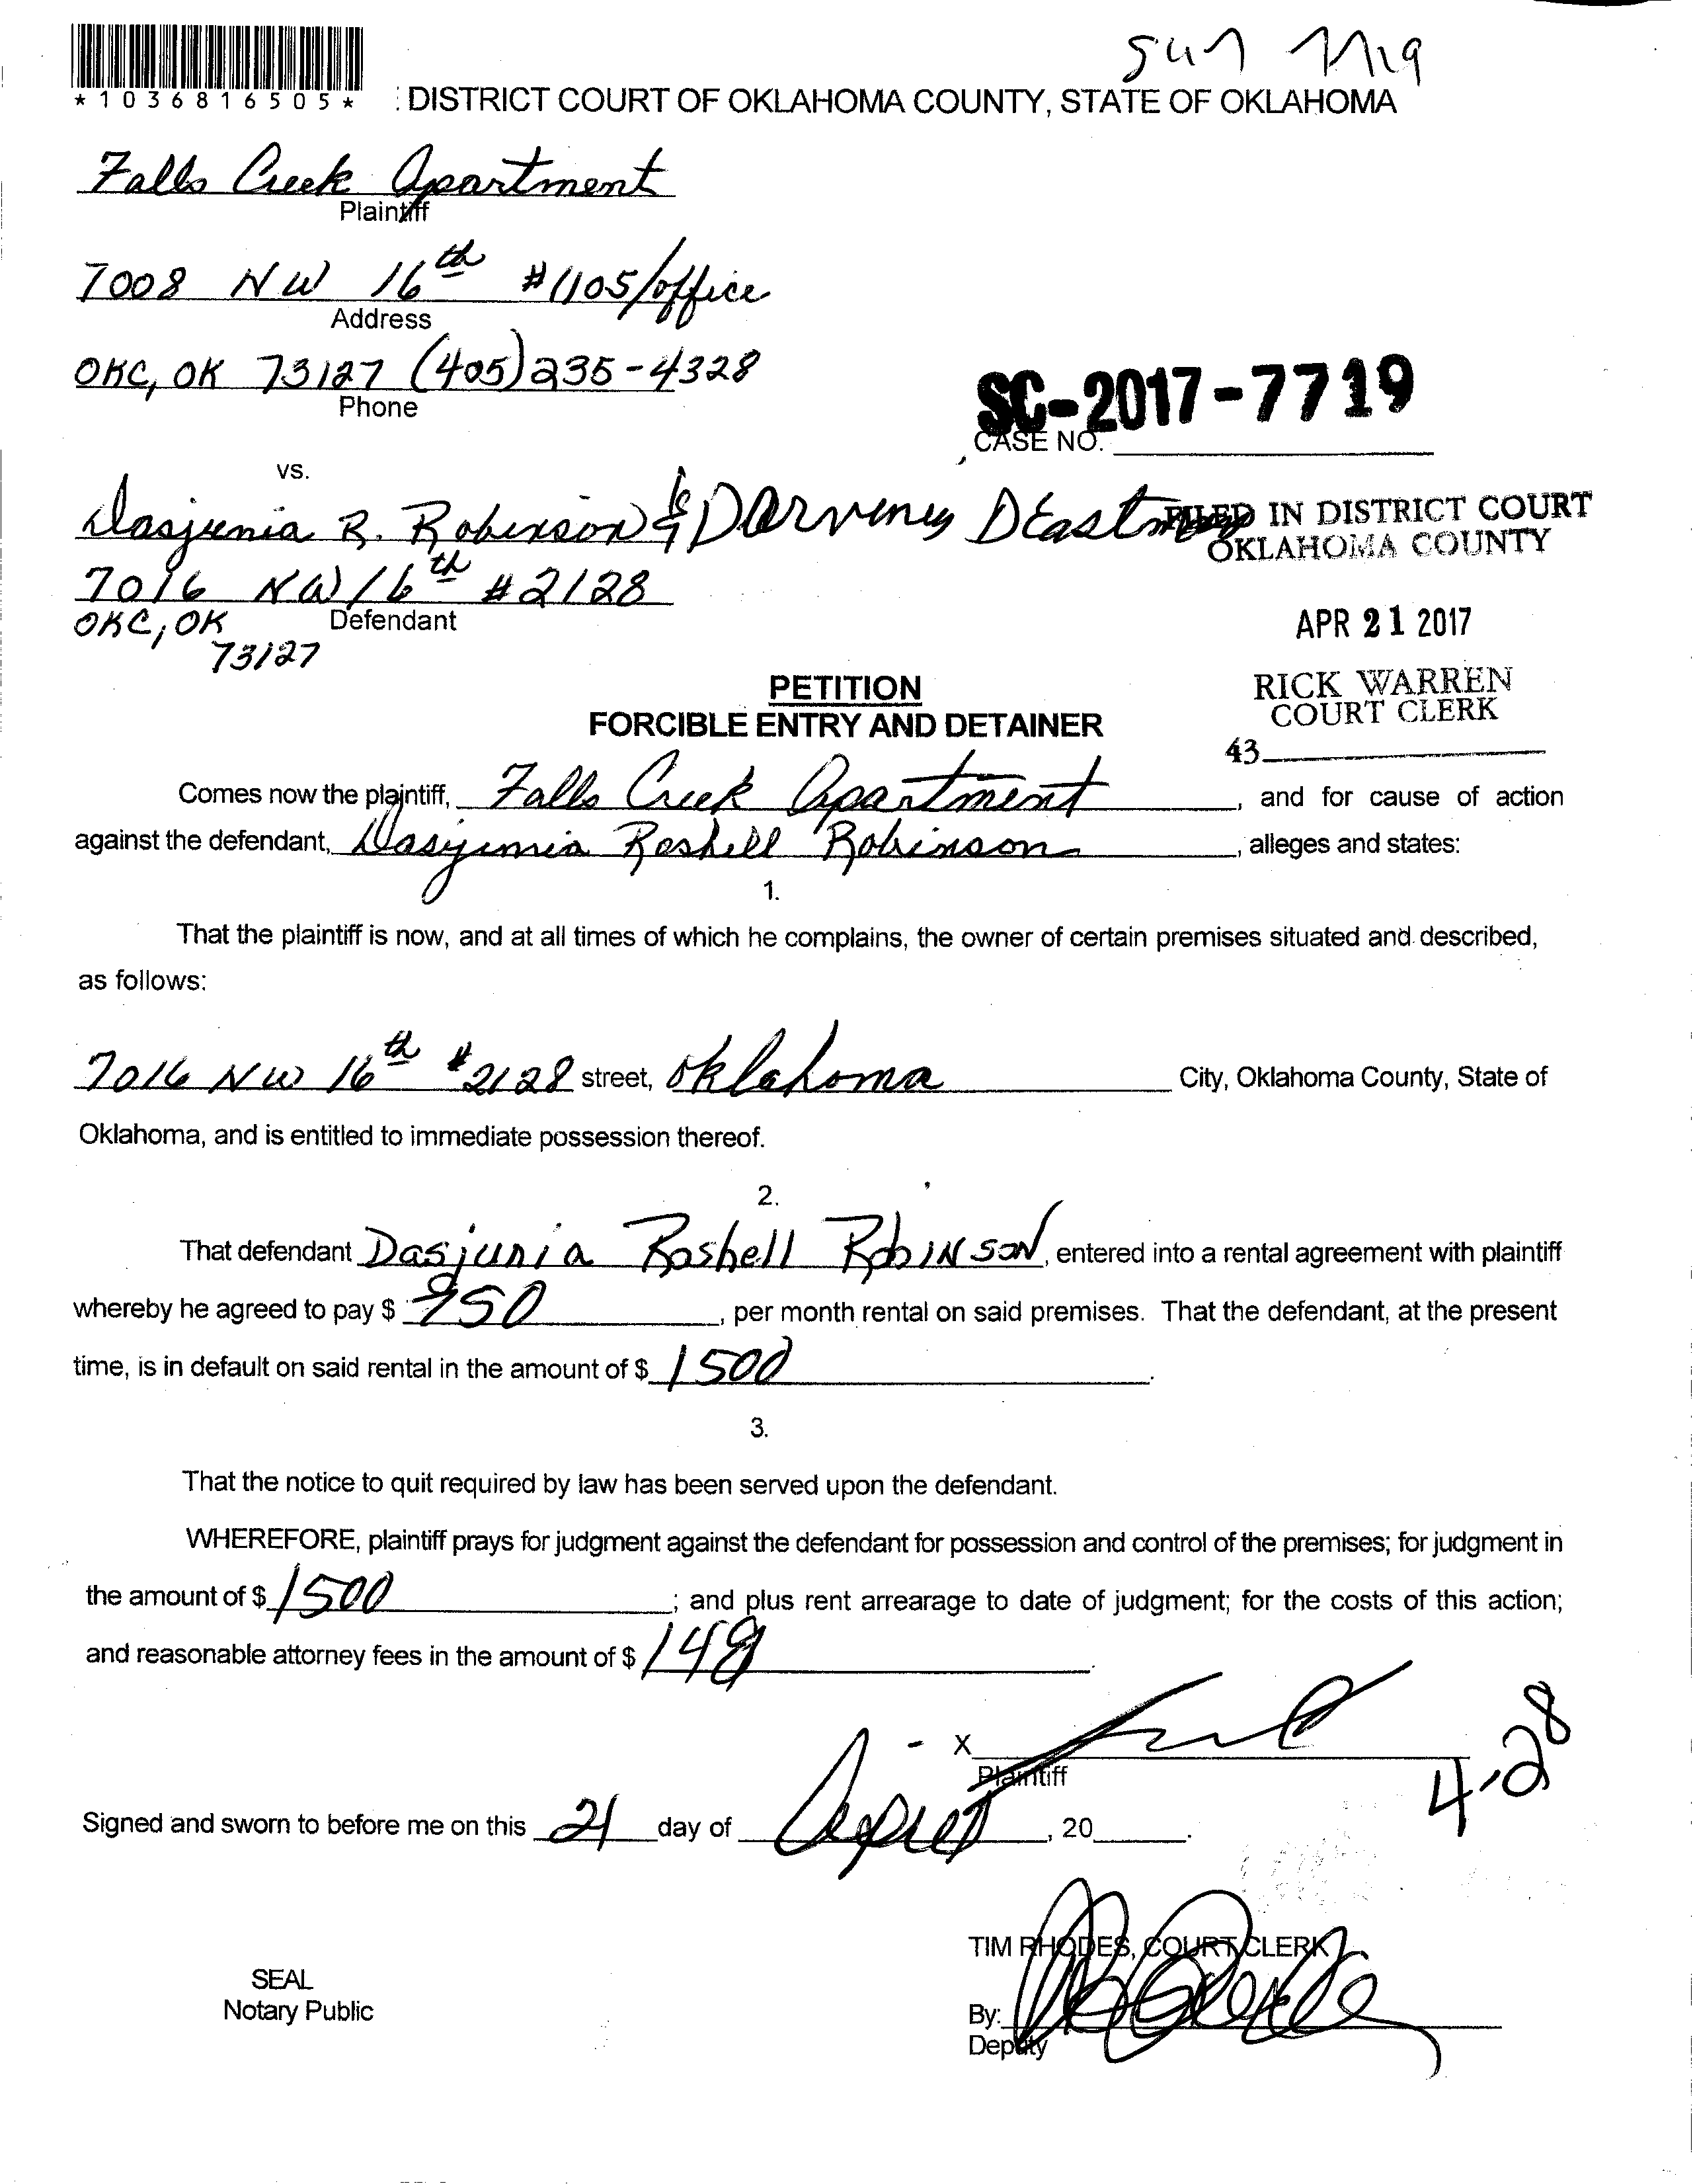 *1036816505*
DISTRICT COURT OF OKLAHOMA COUNTY, STATE OF OKLAHOMA
Falls Creek Apartment
Plaintiff
7008 NW 16th #1105/office
Address
OKC, OK 73127 (405) 235-4328
Phone
SC-2017-7719
CASE NO.
vs.
Dasjunia R. Robinson &
FILED IN DISTRICT COURT
OKLAHOMA COUNTY
7016 NW 16th #2128
OKC, OK Defendant
73127
APR 21 2017
PETITION
RICK WARREN
COURT CLERK
FORCIBLE ENTRY AND DETAINER
43
Comes now the plaintiff, Falls Creek Apartment, and for cause of action
against the defendant, Dasjunia Roshell Robinson, alleges and states:
1.
That the plaintiff is now, and at all times of which he complains, the owner of certain premises situated and described,
as follows:
7016 NW 16th #2128 street, Oklahoma City, Oklahoma County, State of
Oklahoma, and is entitled to immediate possession thereof.
2.
That defendant Dasjunia Roshell RobINSON, entered into a rental agreement with plaintiff
whereby he agreed to pay $ 950, per month rental on said premises. That the defendant, at the present
time, is in default on said rental in the amount of $ 1500.
3.
That the notice to quit required by law has been served upon the defendant.
WHEREFORE, plaintiff prays for judgment against the defendant for possession and control of the premises; for judgment in
the amount of $ 1500; and plus rent arrearage to date of judgment; for the costs of this action;
and reasonable attorney fees in the amount of $ 148.
X
Plaintiff
4-28
Signed and sworn to before me on this 21 day of April, 20.
TIM RHODES, COURT CLERK
SEAL
Notary Public
By:
Deputy